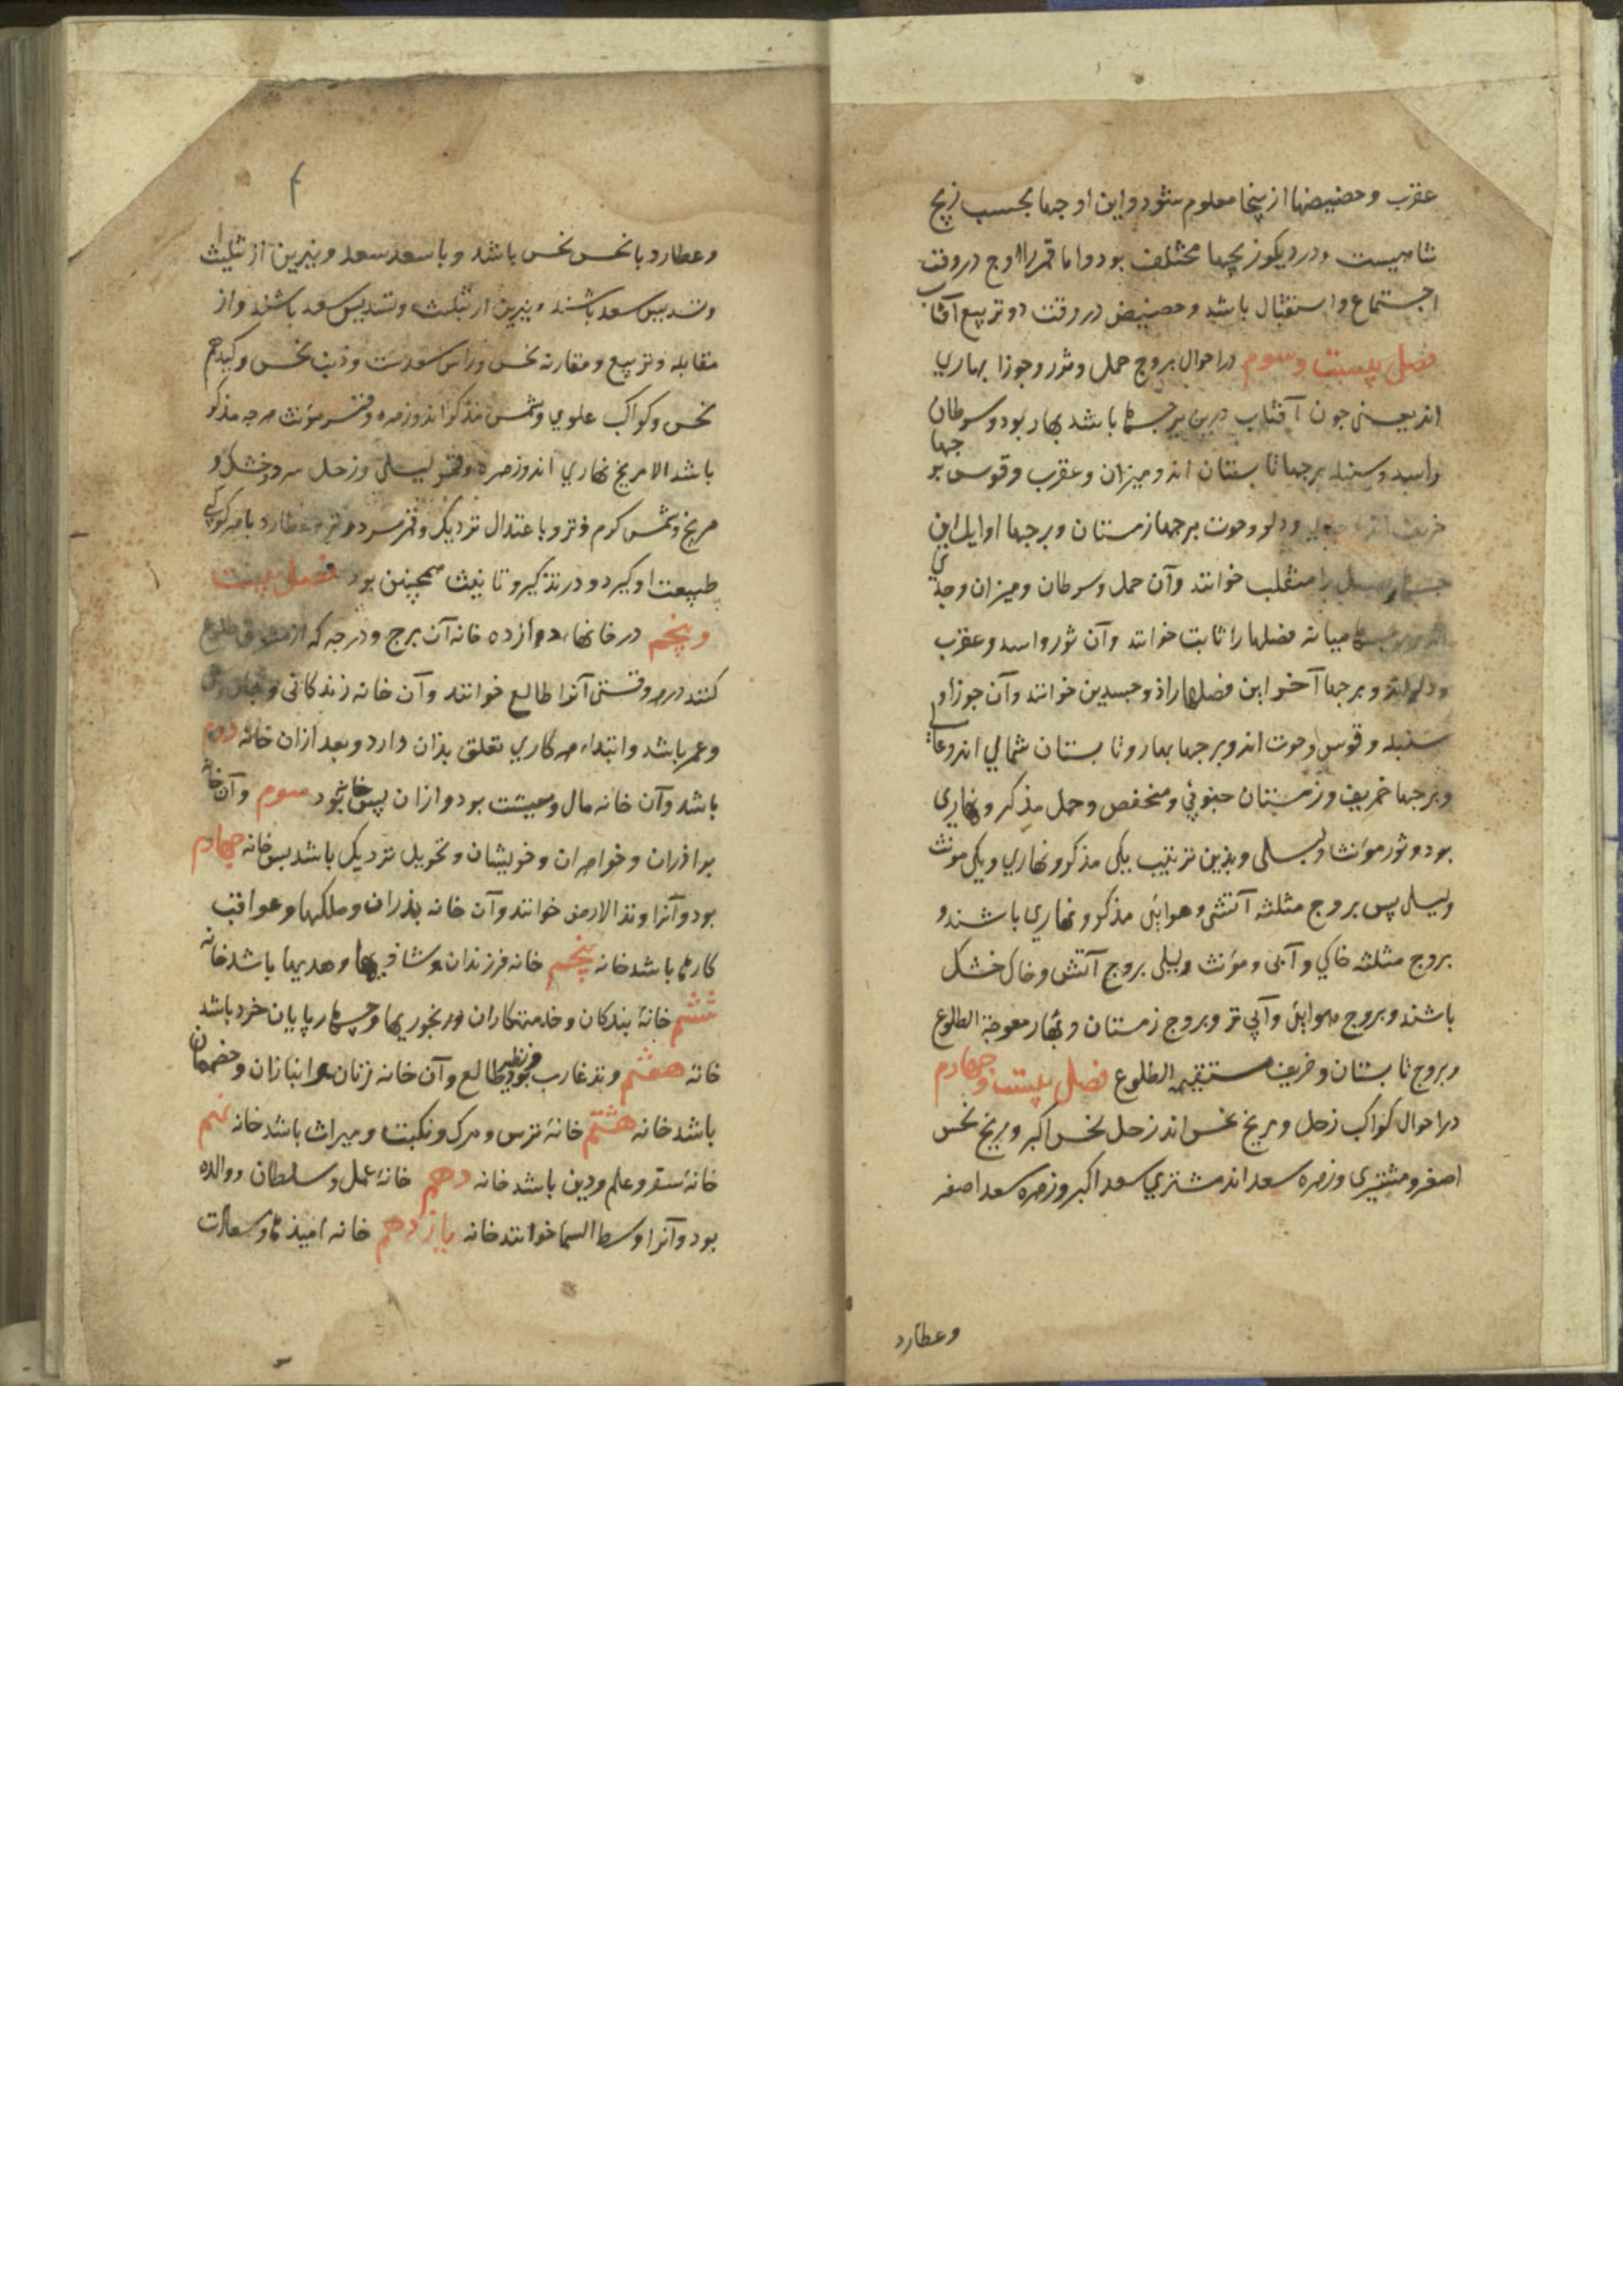 عقرب و حضیضها از ینجا معلوم شود و این اوجها بحسب زیج
شاهیست و در دیکر زیجها مختلف بود و اما قمر را اوج در وقت
اجتماع و استقبال باشد و حضیض در وقت دو تربیع آفتاب
فصل بیست و سوم در احوال بروج حمل و ثور و جوزا بهاری
اند یعنی جون آفتاب درین برجها باشد بهار بود و سرطان
و اسد و سنبله برجها تابستان اند و میزان و عقرب و قوس برجها
خریف اند و جدی و دلو و حوت برجها زمستان و برجها اوایل این
را منقلب خوانند و آن حمل و سرطان و میزان و جدی
اند و برجها میانه فصلها را ثابت خوانند و آن ثور و اسد و عقرب
و دلو اند و برجها آخر این فصلها را ذو جسدین خوانند و آن جوزا و
سنبله و قوس و حوت اند و برجها بهار و تابستان شمالی اند و عالی
و برجها خریف و زمستان جنوبی و منخفض و حمل مذکر و نهاری
بود و ثور مؤنث و لیلی و بذین ترتیب یکی مذکر و نهاری و یکی مونث
و لیلی پس بروج مثلثه آتشی و هوایی مذکر و نهاری باشند و
بروج مثلثه خاکی و آبی و مؤنث و لیلی بروج آتش و خاک خشک
باشند و بروج هوایی و آبی تر و بروج زمستان و بهار معوجة الطلوع
و بروج تابستان و خریف مستقیمه الطلوع فصل بیست و جهارم
در احوال کواکب زحل و مریخ نحس اند زحل نحس اکبر و مریخ نحس
اصغر و مشتری و زهره سعد اند مشتری سعد اکبر و زهره سعد اصغر
و عطارد
و عطارد با نحس نحس باشد و با سعد سعد و نیرین از تثلیث
و تسدیس سعد باشند و نیرین از تثلیث و تسدیس سعد باشند و از
مقابله و تربیع و مقارنه نحس و راس سعدست و ذنب نحس و کید هم
نحس و کواکب علوی و شمس مذکر اند و زهره و قمر مؤنث هرجه مذکر
باشد الا مریخ نهاری اند و زهره و قمر لیلی و زحل سرد و خشک و
مریخ و شمس کرم و تر و باعتدال نزدیک و قمر سرد و تر و عطارد با هر کوکبی
طبیعت او کیرد و در تذکیر و تانیث همچنین بود فصل بیست
و پنجم در خانها دوازده خانه آن برج و درجه که از مشرق طلوع
کنند در هر وقتی آنرا طالع خوانند و آن خانه زندکانی و جان و تن
و عمر باشد و ابتداء هر کاری تعلق بذان دارد و بعد ازان خانه دوم
باشد و آن خانه مال و معیشت بود و ازان پس خانه بود سوم و آن خانه
براذران و خواهران و خویشان و تحویل نزدیک باشد پس خانه جهارم
بود و آنرا وتد الارض خوانند و آن خانه پذران و ملکها و عواقب
کارها باشد خانه پنجم خانه فرزندان و شاذیها و هدیها باشد خانه
ششم خانهٔ بندکان و خدمتکاران و رنجوریها و چهارپایان خرد باشد
خانه هفتم وتد غارب بود و نظیر طالع و آن خانه زنان و انبازان و خصمان
باشد خانه هشتم خانهٔ ترس و مرک و نکبت و میراث باشد خانه نهم
خانهٔ سفر و علم و دین باشد خانه دهم خانهٔ عمل و سلطان و والده
بود و آنرا وسط السما خوانند خانه یازدهم خانه امیذها و سعادت